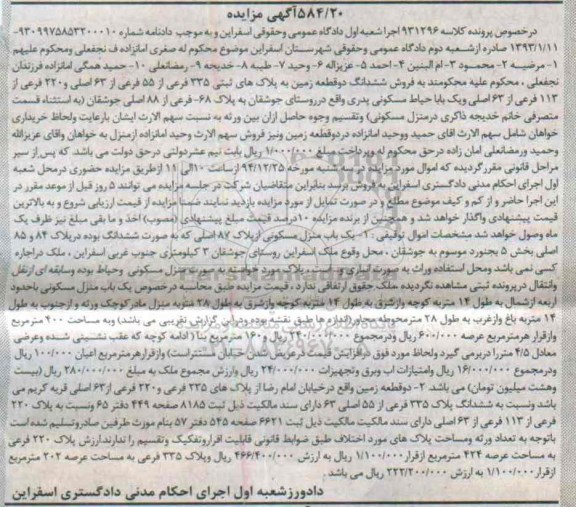 ۵۸۴/۲۰آگهی مزایده
درخصوص پرونده کلاسه ۹۳۱۲۹۶ اجرا شعبه اول دادگاه عمومی وحقوقی اسفراین و به موجب دادنامه شماره ۹۳۰۹۹۷۵۸۵۳۳۰۰۰۱۰-
۱۳۹۳/۱/۱۱ صادره ازشعبه دوم دادگاه عمومی وحقوقی شهرستان اسفراین موضوع محکوم له صغری امانزاده ف نجفعلی ومحکوم علیهم
۱- مرضیه ۲- محمود ۳- ام البنین ۴- احمد ۵- عزیزاله ۶- وحید ۷- طیبه ۸- خدیجه ۹- رمضانعلی ۱۰- حمید همگی امانزاده فرزندان
نجفعلی ، محکوم علیه محکومند به فروش ششدانگ دوقطعه زمین به پلاک های ثبتی ۳۳۵ فرعی از ۵۵ فرعی از ۶۳ اصلی و۲۲۰ فرعی از
۱۱۳ فرعی از ۶۳ اصلی ویک بابا حیاط مسکونی پدری واقع درروستای جوشقان به پلاک ۶۸- فرعی از ۸۸ اصلی جوشقان (به استثناء قسمت
متصرفی خانم خدیجه ذاکری درمنزل مسکونی) وتقسیم وجوه حاصل ازان بین ورثه به نسبت سهم الارث ایشان بارعایت ولحاظ خریداری
خواهان شامل سهم الارث اقای حمید ووحید امانزاده دردوقطعه زمین ونیز فروش سهم الارث وحید امانزاده ازمنزل به خواهان واقای عزیزالله
وحمید ورمضانعلی امان زاده درحق محکوم له وپرداخت مبلغ ۱/۰۰۰/۰۰۰ ریال بابت نیم عشردولتی درحق دولت می باشد. که پس از سیر
مراحل قانونی مقررگردیده که اموال مورد مزایده در روز سه شنبه مورخه ۹۴/۱۲/۲۵ ازساعت ۱۰الی ۱۱ ازطریق مزایده حضوری درمحل شعبه
اول اجرای احکام مدنی دادگستری اسفراین به فروش برسد بنابراین متقاضیان شرکت در جلسه مزایده می توانند ۵ روز قبل از موعد مقرر در
این اجرا حاضر و از کم و کیف موضوع مطلع و در صورت تمایل از مورد مزایده بازدید نمایند ضمنا مزایده از قیمت ارزیابی شروع و به بالاترین
قیمت پیشنهادی واگذار خواهد شد و همچنین از برنده مزایده ۱۰درصد قیمت مبلغ پیشنهادی (مصوب) اخذ و ما بقی مبلغ نیز ظرف یک
ماه وصول خواهد شد مشخصات اموال توقیفی . ۱- یک باب منزل مسکونی ازپلاک ۸۷ اصلی که به صورت ششدانگ بوده درپلاک ۸۴ و ۸۵
اصلی بخش ۵ بجنورد موسوم به جوشقان ، محل وقوع ملک اسفراین روستای جوشقان ۳ کیلومتری جنوب غربی اسفراین ، ملک دراجاره
کسی نمی باشد ومحل استفاده وراث به صورت انباری و ... است پلاک مورد مزایده به صورت منزل مسکونی وحیاط بوده وسابقه ای ازنقل
وانتقال درپرونده ثبتی مشاهده نگردیده مملک حقوق ارتفاقی ندارد ، قیمت مزایده طبق محاسبه درخصوص یک باب منزل مسکونی باحدود
اربعه ازشمال به طول ۱۴ متربه کوچه وازشرق به طول ۱۴ متربه کوچه وازشرق به طول ۲۸ متربه منزل مادرکوچک ورثه وازجنوب به طول
۱۴ متربه باغ وازغرب به طول ۲۸ مترمحوطه مجاور (اندازه ها طبق نقشه بوده ودراین گزارش تقریبی می باشد) وبه مساحت ۴۰۰ مترمربع
وازقرار هرمترمربع عرصه ۶۰۰/۰۰۰ ریال ودرمجموع ۲۴۰/۰۰۰/۰۰۰ ریال و۱۶۰ مترمربع بنا (ادامه کوچه که عقب نشینی شده وعرضی
معادل ۴/۵ متررا دربرمی گیرد ولحاظ مورد فوق درافزایش قیمت درعریض شدن خیابان مستتراست) وازقرارهرمترمربع اعیان ۱۰۰/۰۰۰ ریال
ودرمجموع ۱۶/۰۰۰/۰۰۰ ریال وامتیازات اب وبرق وتجهیزات ۲۴/۰۰۰/۰۰۰ ریال وارزش مجموع ملک به مبلغ ۲۸۰/۰۰۰/۰۰۰ ریال (بیست
وهشت میلیون تومان) می باشد. ۲- دوقطعه زمین واقع درخیابان امام رضا از پلاک های ۳۳۵ فرعی و۲۲۰ فرعی از۶۳ اصلی قریه کریم می
باشد ونسبت به ششدانگ پلاک ۳۳۵ فرعی از ۵۵ اصلی ۶۳ دارای سند مالکیت ذیل ثبت ۸۱۸۵ صفحه ۴۴۹ دفتر ۶۵ ونسبت به پلاک ۲۲۰
فرعی از ۱۱۳ فرعی از ۶۳ اصلی دارای سند مالکیت ذیل ثبت ۶۶۲۱ صفحه ۵۴۵ دفتر ۵۷ بنام مورث طرفین صادروتسلیم شده است
باتوجه به تعداد ورثه ومساحت پلاک های مورد اختلاف طبق ضوابط قانونی قابلیت افرازوتفکیک وتقسیم را ندارندارزش پلاک ۲۲۰ فرعی
به مساحت عرصه ۴۲۴ مترمربع ازقرار ۱/۱۰۰/۰۰۰ ریال به ارزش ۴۶۶/۴۰۰/۰۰۰ ریال وپلاک ۳۳۵ فرعی به مساحت عرصه ۲۰۲ مترمربع
ازقرار ۱/۱۰۰/۰۰۰ به ارزش ۲۲۲/۲۰۰/۰۰۰ ریال می باشد .
دادورزشعبه اول اجرای احکام مدنی دادگستری اسفراین